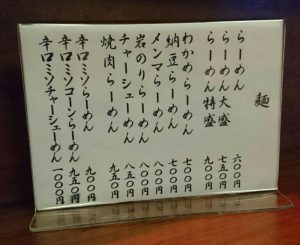 麺
らーめん 六〇〇円
らーめん大盛 七五〇円
らーめん特盛 九〇〇円
わかめらーめん 七〇〇円
納豆らーめん 七〇〇円
メンマらーめん 八〇〇円
岩のりらーめん 八〇〇円
チャーシューめん 八五〇円
焼肉らーめん 九五〇円
辛口ミソらーめん 九〇〇円
辛口ミソコーンらーめん 九五〇円
辛口ミソチャーシューめん 一〇〇〇円